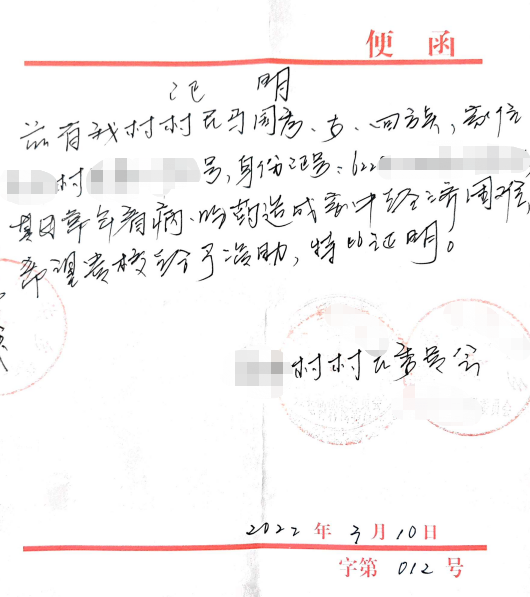 便函
证 明
兹有我村村民马国彦、女、回族，家住
村 号，身份证号：622
其因常年看病、吃药造成家中经济困难，
希望贵校给予资助，特此证明。
村村民委员会
2022 年 3 月 10 日
字第 012 号